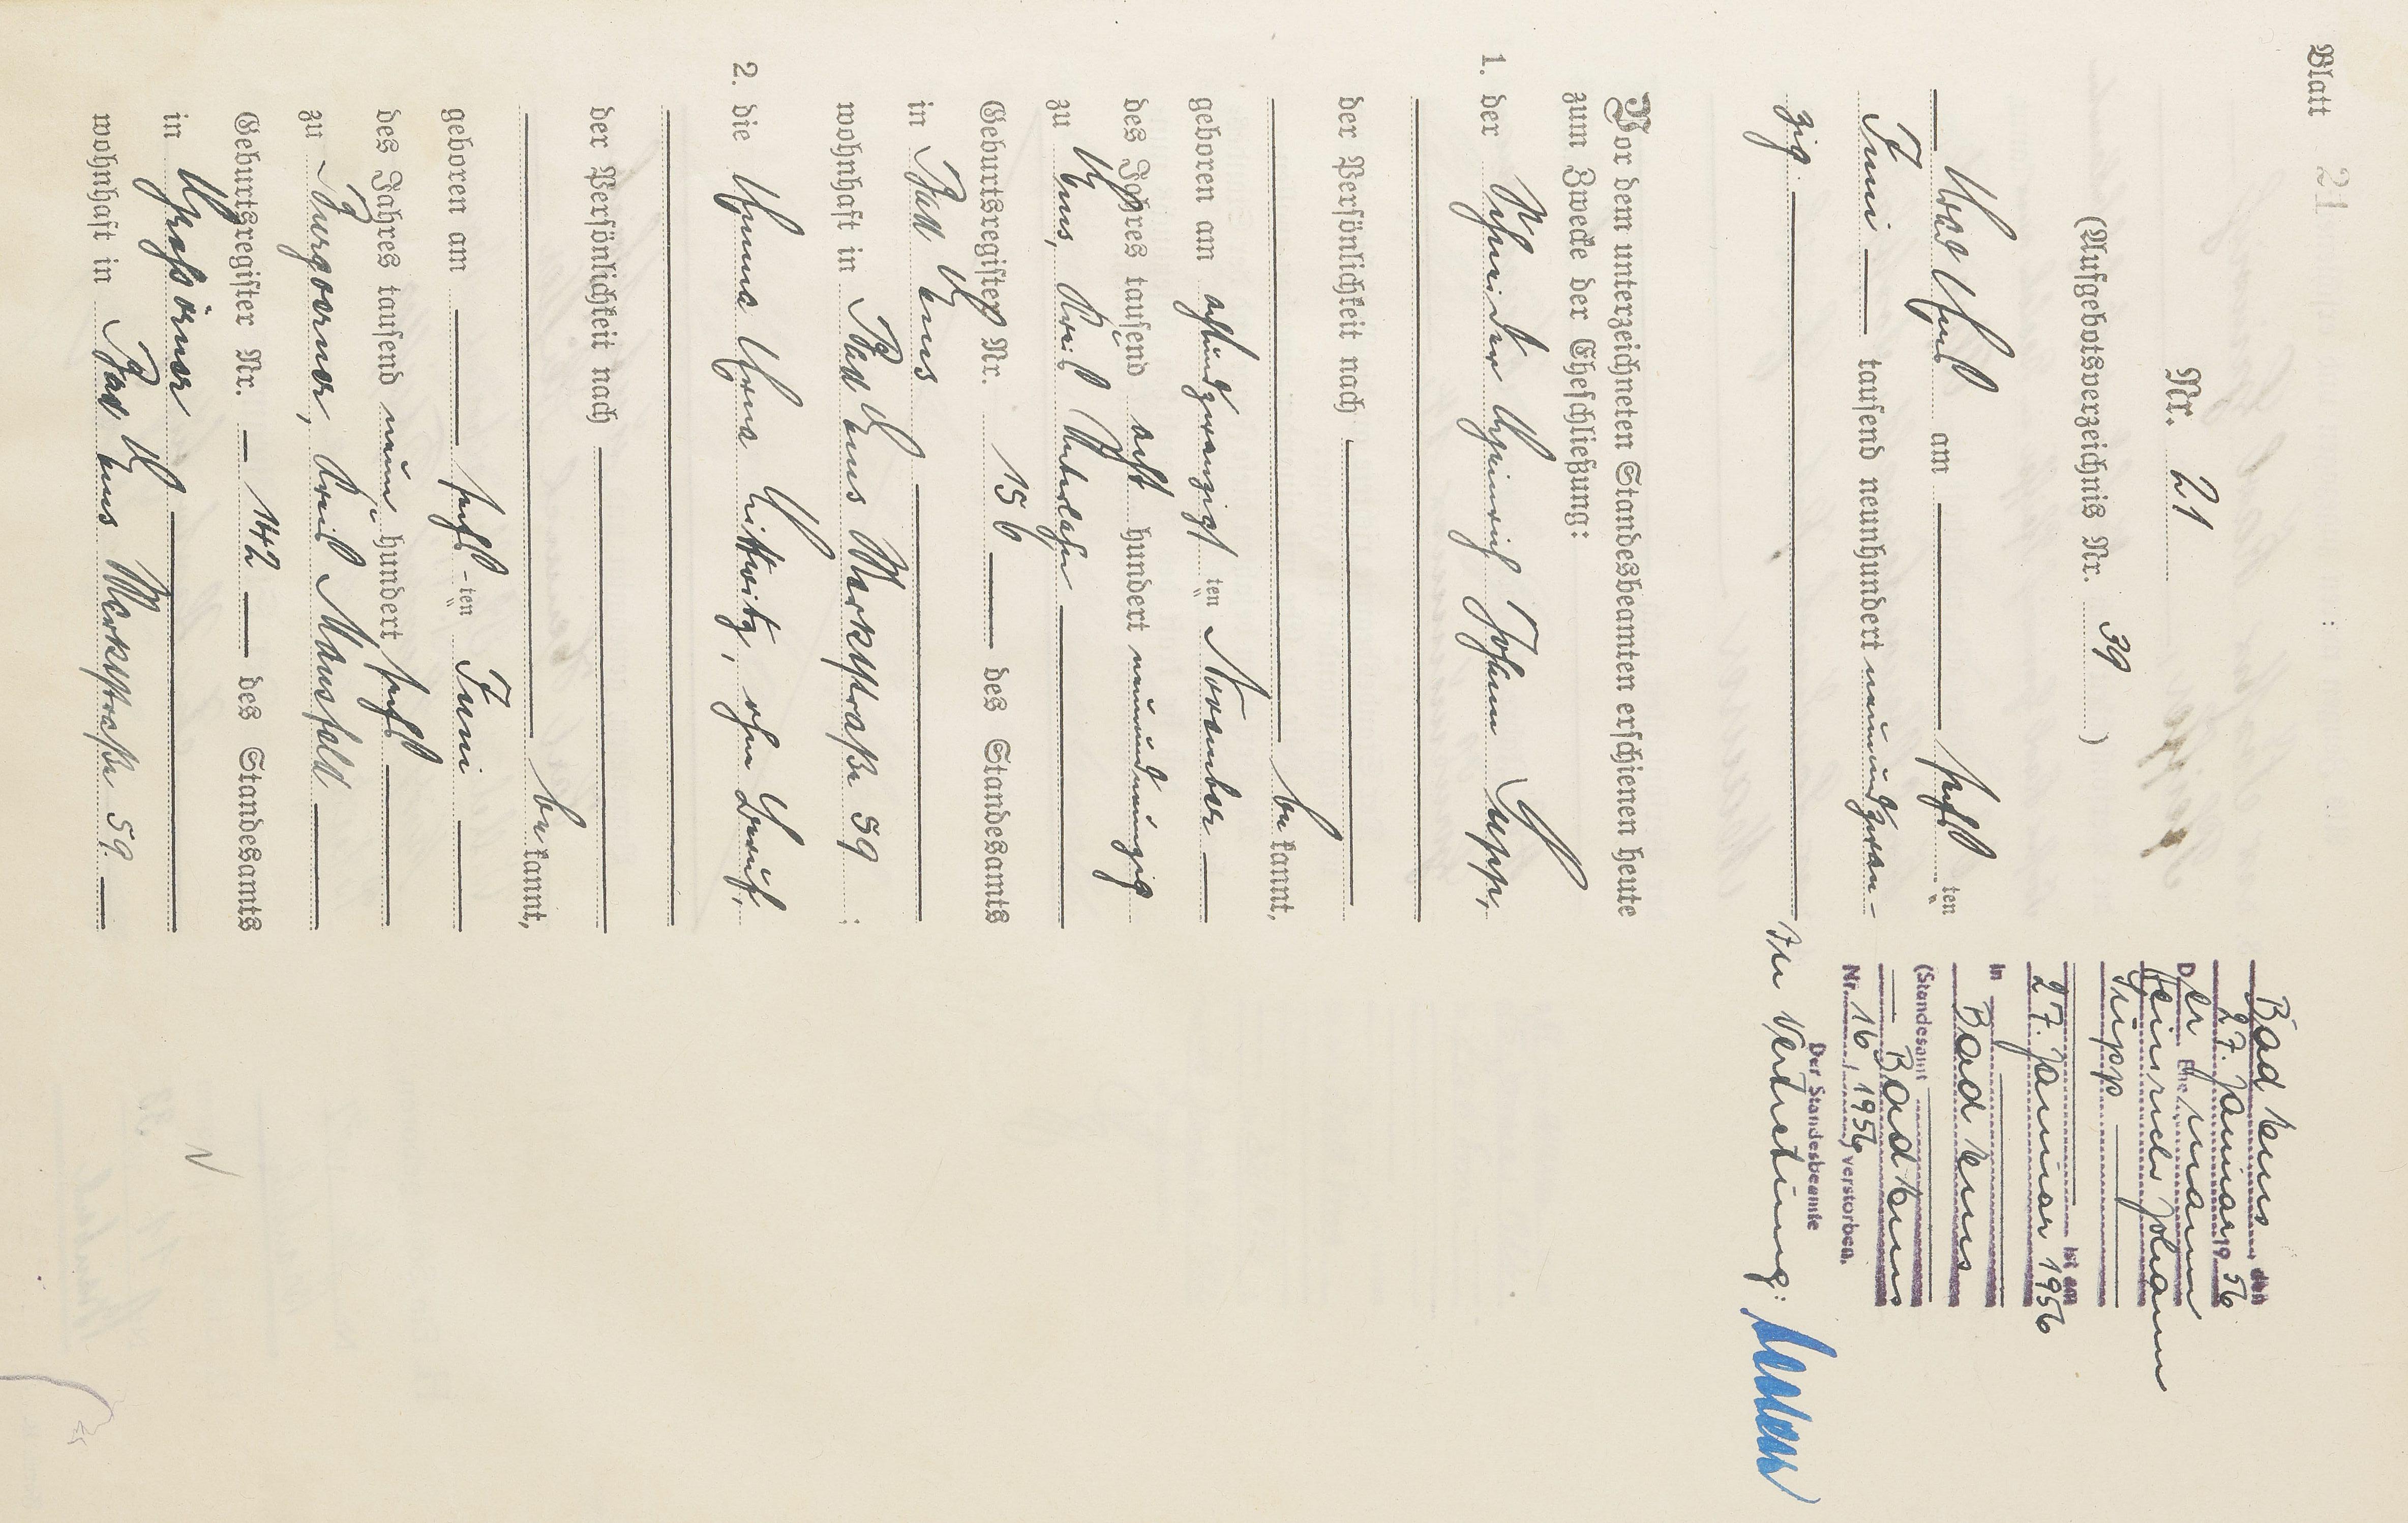 Blatt 21
Nr. 21
(Aufgebotsverzeichnis Nr. 39)
Bad Ems am sechs ten
Juni tausend neunhundert neunundzwan-
zig
Vor dem unterzeichneten Standesbeamten erschienen heute
zum Zwecke der Eheschließung:
1. der Schneider Heinrich Johann
der Persönlichkeit nach
be kannt,
geboren am achtundzwanzigst ten November
des Jahres tausend acht hundert neunundneunzig
zu Ems, Kreis Unterlahn
Geburtsregister Nr. 156 des Standesamts
in Bad Ems
wohnhaft in Bad Ems Marktstraße 59;
2. die Anna Erna, ohne Beruf,
der Persönlichkeit nach
be kannt,
geboren am sechs ten Juni
des Jahres tausend neun hundert sechs
zu Burgörner, Kreis Mansfeld
Geburtsregister Nr. 142 des Standesamts
in Hettstedt
wohnhaft in Bad Ems Marktstraße 59.
Bad Ems den
27. Januar 1956
Der Ehemann
Heinrich Johann
ist am
27. Januar 1956
in Bad Ems
(Standesamt
Bad Ems
Nr. 16, 1956 verstorben.
Der Standesbeamte
In Vertretung: